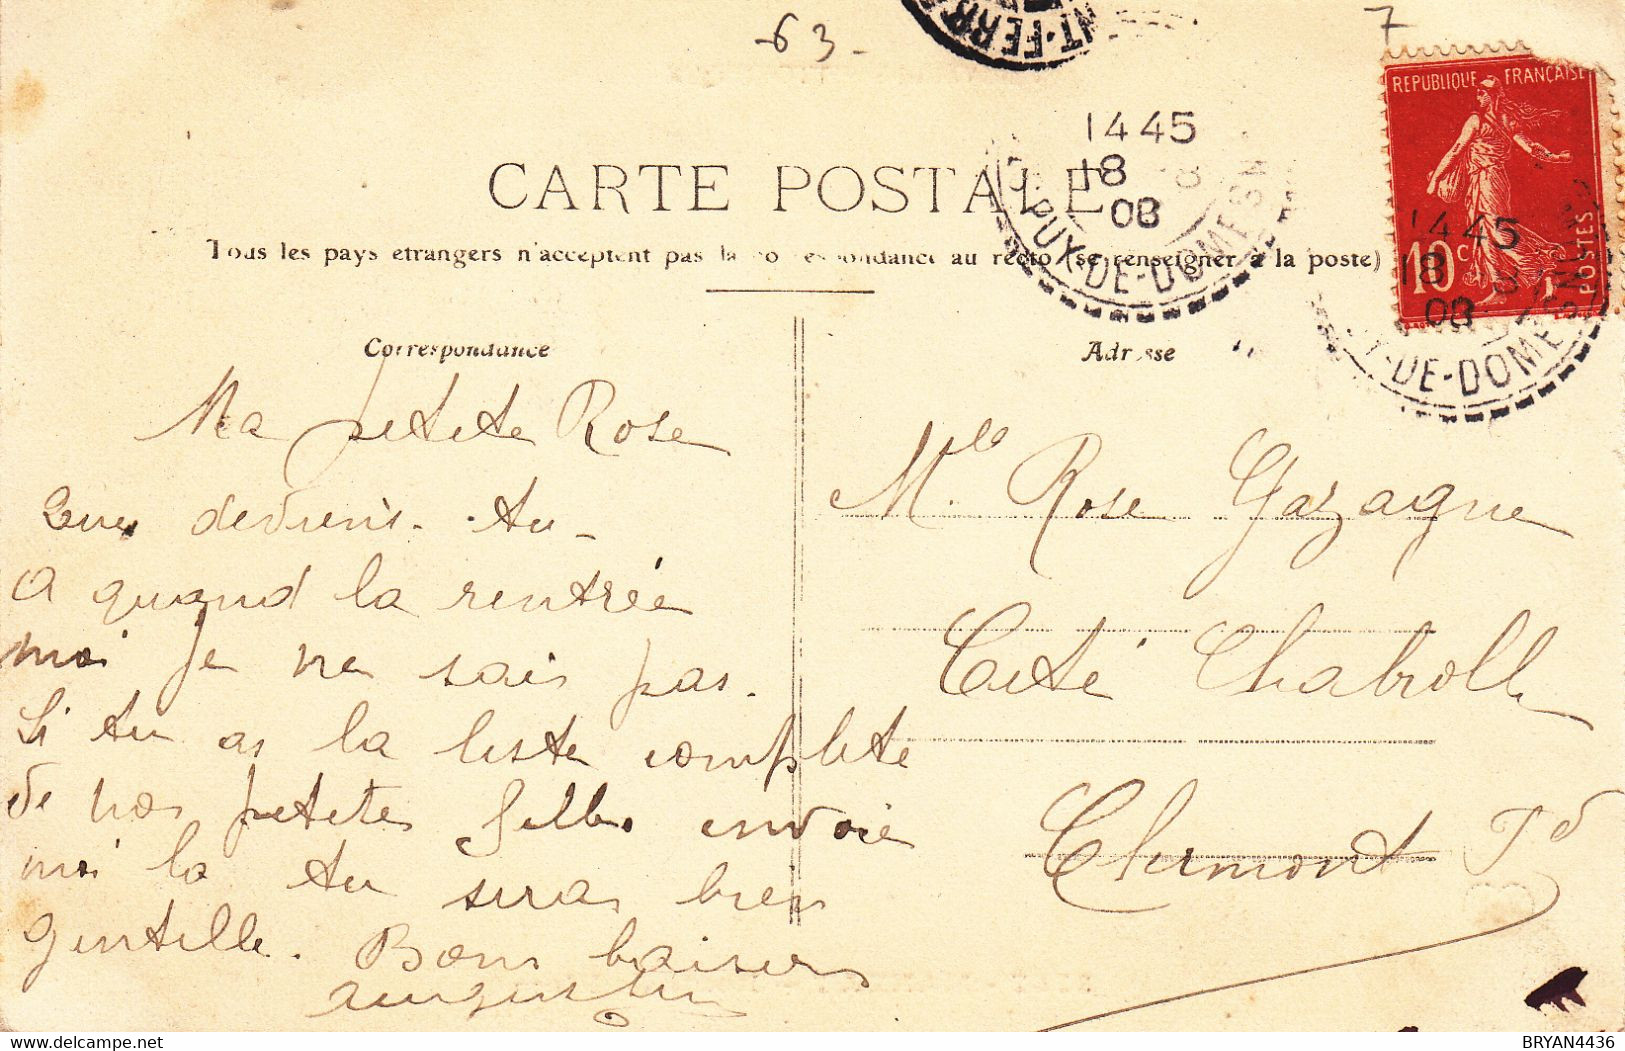 -63-
7
NT-FERR
REPUBLIQUE FRANÇAISE
POSTES
10c
1445
18
08
PUY-DE-DOME
1445
18
08
Y-DE-DOME
CARTE POSTALE
Tous les pays etrangers n'acceptent pas la correspondance au recto (se renseigner à la poste)
Correspondance
Adresse
Ma petite Rose
Que deviens-tu-
a quand la rentrée
moi je ne sais pas.
Si tu as la liste complète
de nos petites filles envoie
moi la tu seras bien
gentille. Bons baisers
Augustin
Mlle Rose Gazagne
Cité Chabroll
Clermont Fd
BRYAN4436